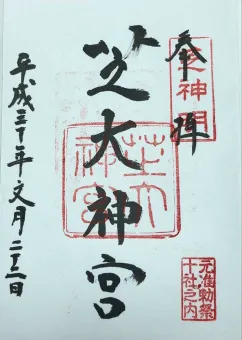 奉拝
芝神明
芝大神宮
芝大神宮
平成三十年文月二十二日
元准勅祭
十社之内